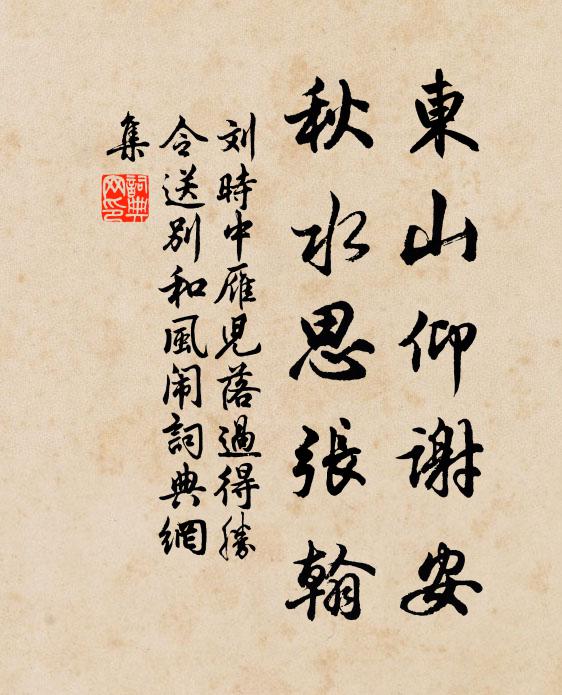 東山仰謝安
秋水思張翰
刘時中雁兒落過得勝
令送别和風闹詞典網
集
詞典网印